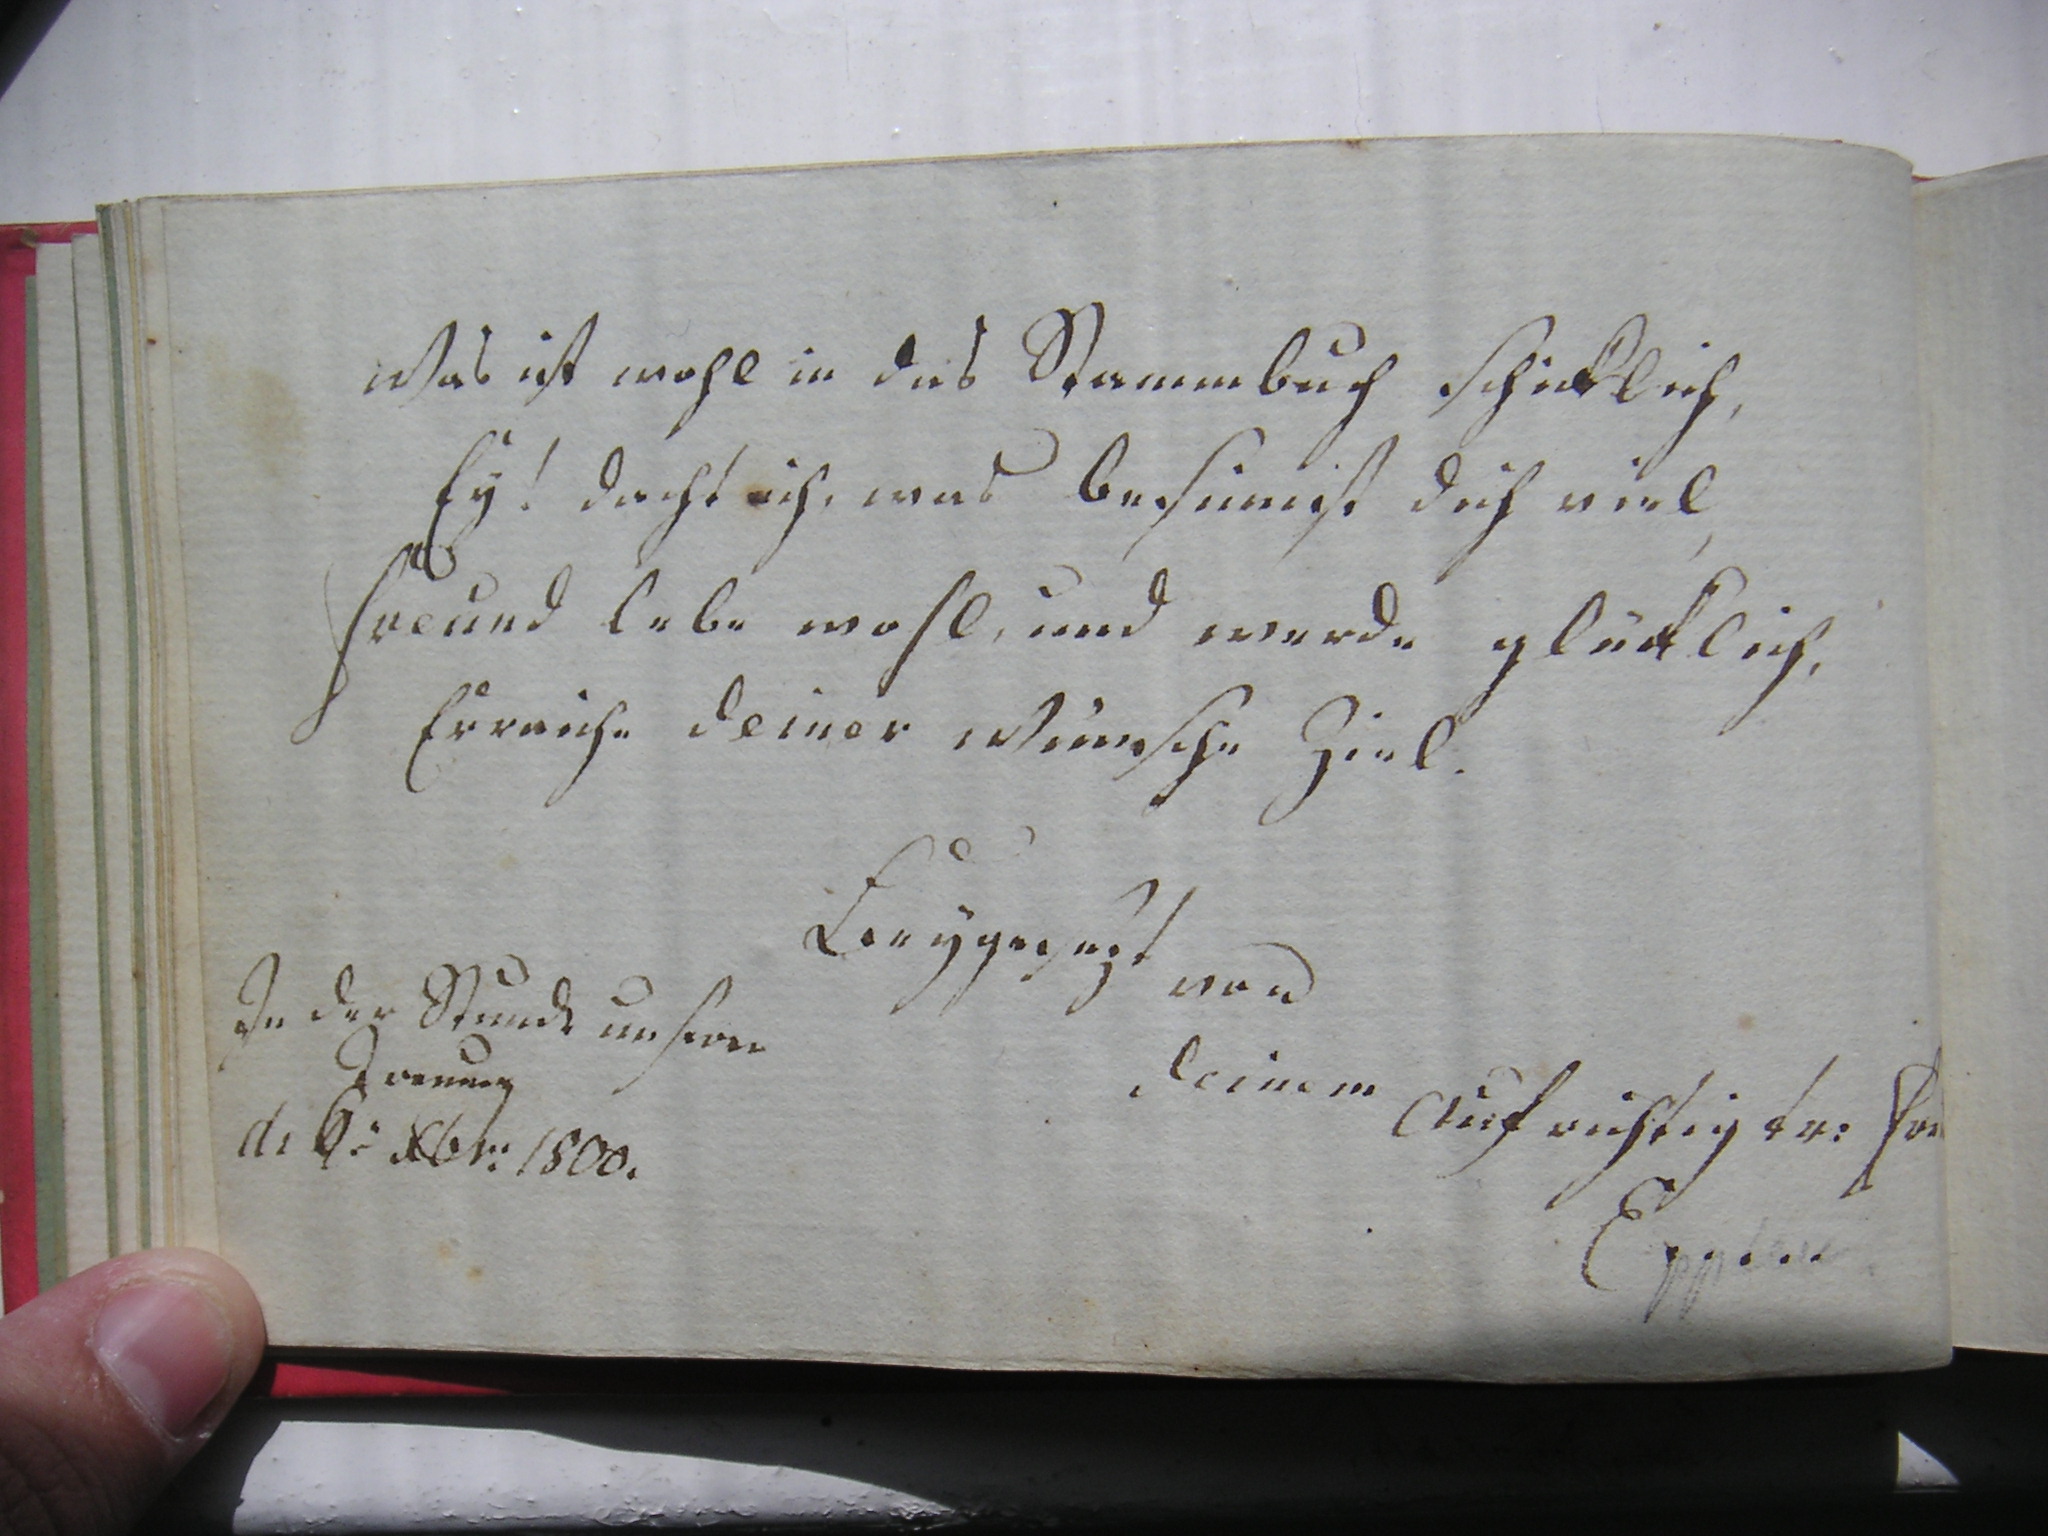 Was ist wohl in das Stammbuch schicklich,
Ey! dacht ich, was besinnst dich viel,
Freund lebe wohl, und werde glücklich,
Erreiche deiner Wünsche Ziel.
Beygesezt
von
deinem aufrichtigtr:
In der Stunde unserer
Trenung
d. 6: Xbr: 1800.